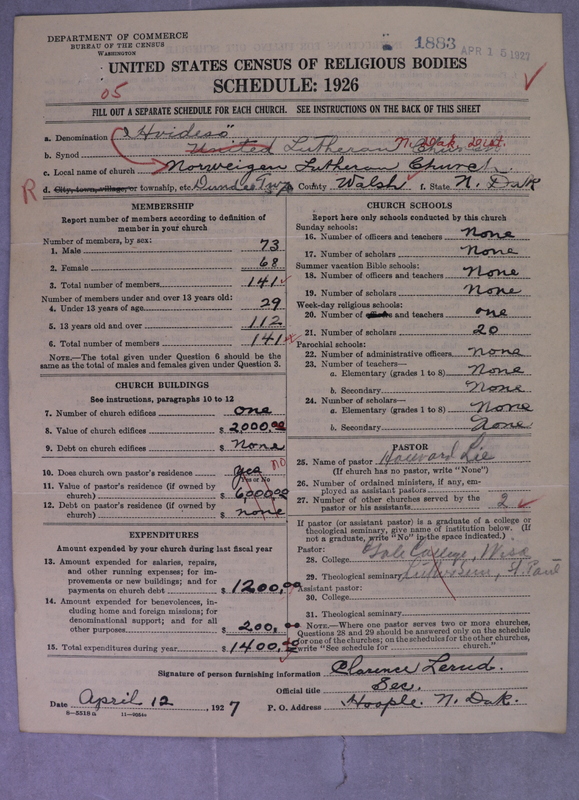 DEPARTMENT OF COMMERCE
BUREAU OF THE CENSUS
WASHINGTON
1883
APR 16 1927
UNITED STATES CENSUS OF RELIGIOUS BODIES
SCHEDULE: 1926
05
FILL OUT A SEPARATE SCHEDULE FOR EACH CHURCH. SEE INSTRUCTIONS ON THE BACK OF THIS SHEET
a. Denomination "Hvideso"
b. Synod United Lutheran Church N. Dak. Dist.
c. Local name of church Norweigen Lutheran Church
R d. City, town, village, or township, etc. Dundee Twp County Walsh f. State N. Dak
MEMBERSHIP
Report number of members according to definition of member in your church
Number of members, by sex:
1. Male 73
2. Female 68
3. Total number of members 141
Number of members under and over 13 years old:
4. Under 13 years of age 29
5. 13 years old and over 112
6. Total number of members 141
NOTE.—The total given under Question 6 should be the same as the total of males and females given under Question 3.
CHURCH BUILDINGS
See instructions, paragraphs 10 to 12
7. Number of church edifices one
8. Value of church edifices $ 2,000.00
9. Debt on church edifices $ None
10. Does church own pastor's residence yes no
Yes or No
11. Value of pastor's residence (if owned by church) $ 6,000.00
12. Debt on pastor's residence (if owned by church) $ none
EXPENDITURES
Amount expended by your church during last fiscal year
13. Amount expended for salaries, repairs, and other running expenses; for improvements or new buildings; and for payments on church debt $ 1200.00
14. Amount expended for benevolences, including home and foreign missions; for denominational support; and for all other purposes $ 200.00
15. Total expenditures during year $ 1400.00
CHURCH SCHOOLS
Report here only schools conducted by this church
Sunday schools:
16. Number of officers and teachers None
17. Number of scholars None
Summer vacation Bible schools:
18. Number of officers and teachers None
19. Number of scholars None
Week-day religious schools:
20. Number of and teachers one
21. Number of scholars 20
Parochial schools:
22. Number of administrative officers none
23. Number of teachers—
a. Elementary (grades 1 to 8) None
b. Secondary None
24. Number of scholars—
a. Elementary (grades 1 to 8) None
b. Secondary None
PASTOR
25. Name of pastor Howard Lie
(If church has no pastor, write "None")
26. Number of ordained ministers, if any, employed as assistant pastors
27. Number of other churches served by the pastor or his assistants 2
If pastor (or assistant pastor) is a graduate of a college or theological seminary, give name of institution below. (If not a graduate, write "No" in the space indicated.)
Pastor:
28. College Gale College, Wisc
29. Theological seminary St. Paul
Assistant pastor:
30. College
31. Theological seminary
NOTE.—Where one pastor serves two or more churches, Questions 28 and 29 should be answered only on the schedule for one of the churches; on the schedules for the other churches, write "See schedule for church."
Signature of person furnishing information Clarence Lerud.
Official title Sec.
Date April 12, 1927 P. O. Address Hoople. N. Dak.
8—5518 a